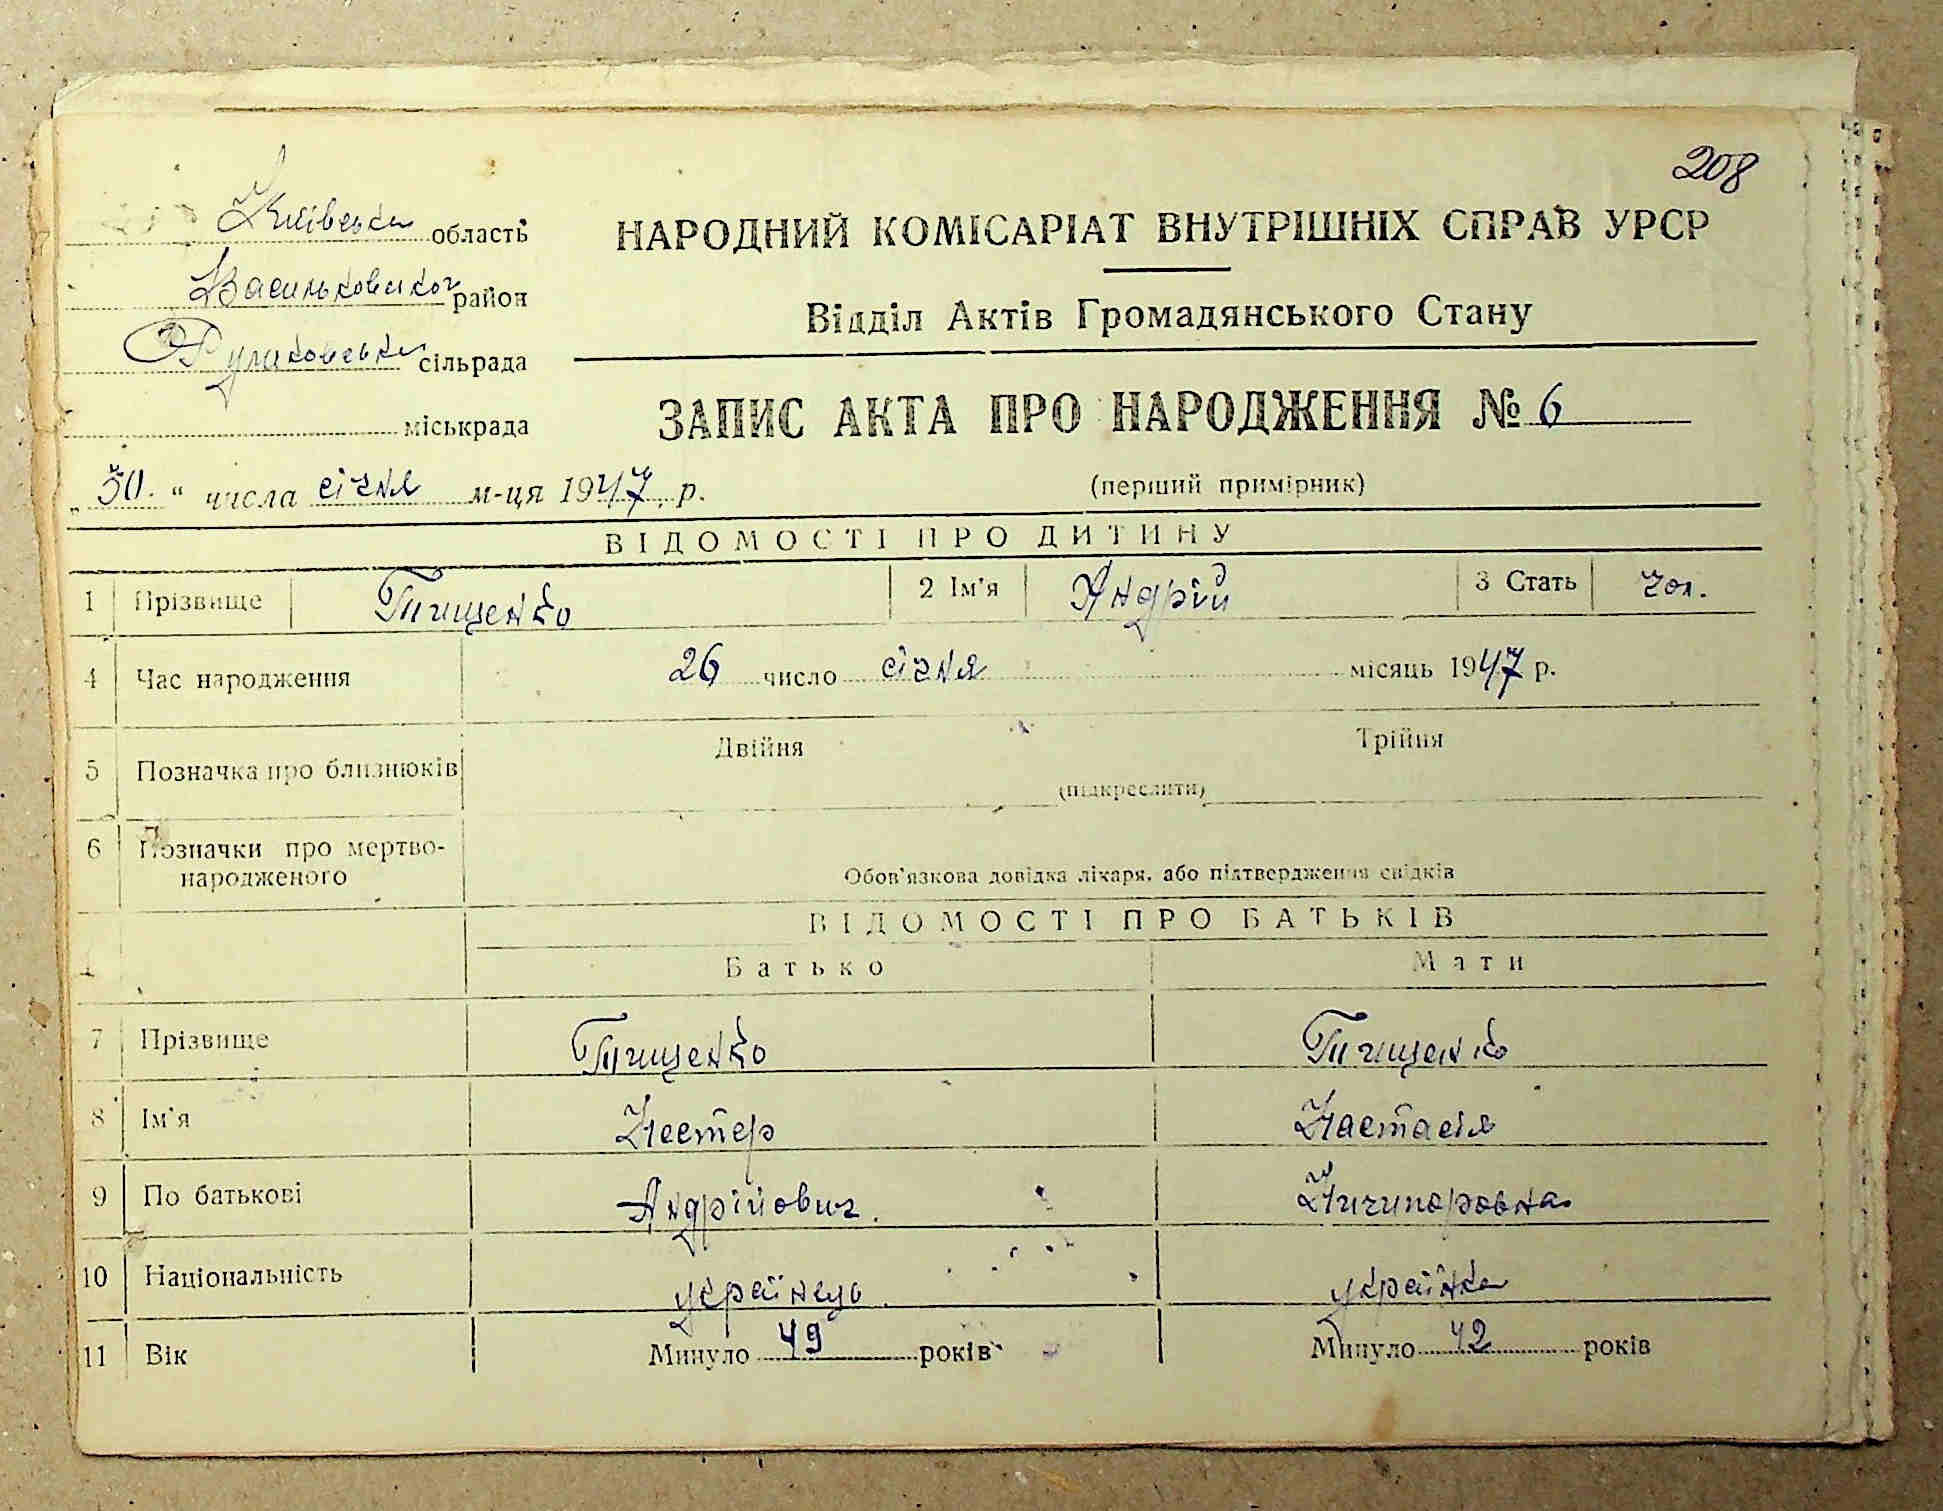 208
Київська область
Васильковский район
сільрада
міськрада
НАРОДНИЙ КОМІСАРІАТ ВНУТРІШНІХ СПРАВ УРСР
Відділ Актів Громадянського Стану
ЗАПИС АКТА ПРО НАРОДЖЕННЯ № 6
(перший примірник)
„30.“ числа січня м-ця 1947 р.
ВІДОМОСТІ ПРО ДИТИНУ
1 Прізвище Тищенко 2 Ім'я Андрій 3 Стать чол.
4 Час народження 26 число січня місяць 1947 р.
5 Позначка про близнюків Двійня Трійня
(підкреслити)
6 Позначки про мертво-
народженого
Обов'язкова довідка лікаря, або підтвердження свідків
ВІДОМОСТІ ПРО БАТЬКІВ
Батько Мати
7 Прізвище Тищенко Тищенко
8 Ім'я Нестер Настасія
9 По батькові Андрійович. Ничипоровна
10 Національність українець українка
11 Вік Минуло 49 років Минуло 42 років